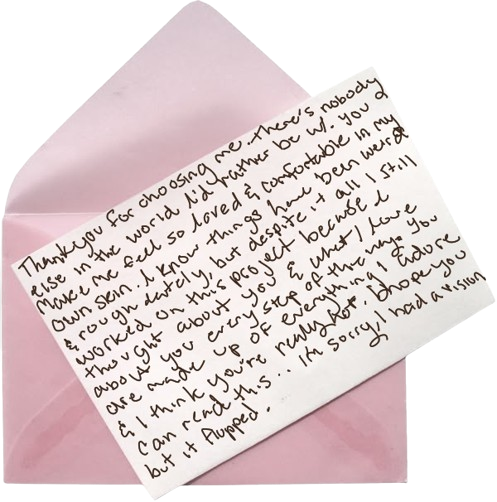 Thankyou for choosing me. there's nobody
else in the world I'd rather be w. you
make me feel so loved & comfortable in my
own skin. I know things have been weird
& rough lately, but despite it all I still
worked on this project because I
thought about you & what I love
about you every step of the way. you
are made up of everything I adore
& I think you're really hot. I hope you
can read this.. I'm sorry, I had a vision
but it flupped.